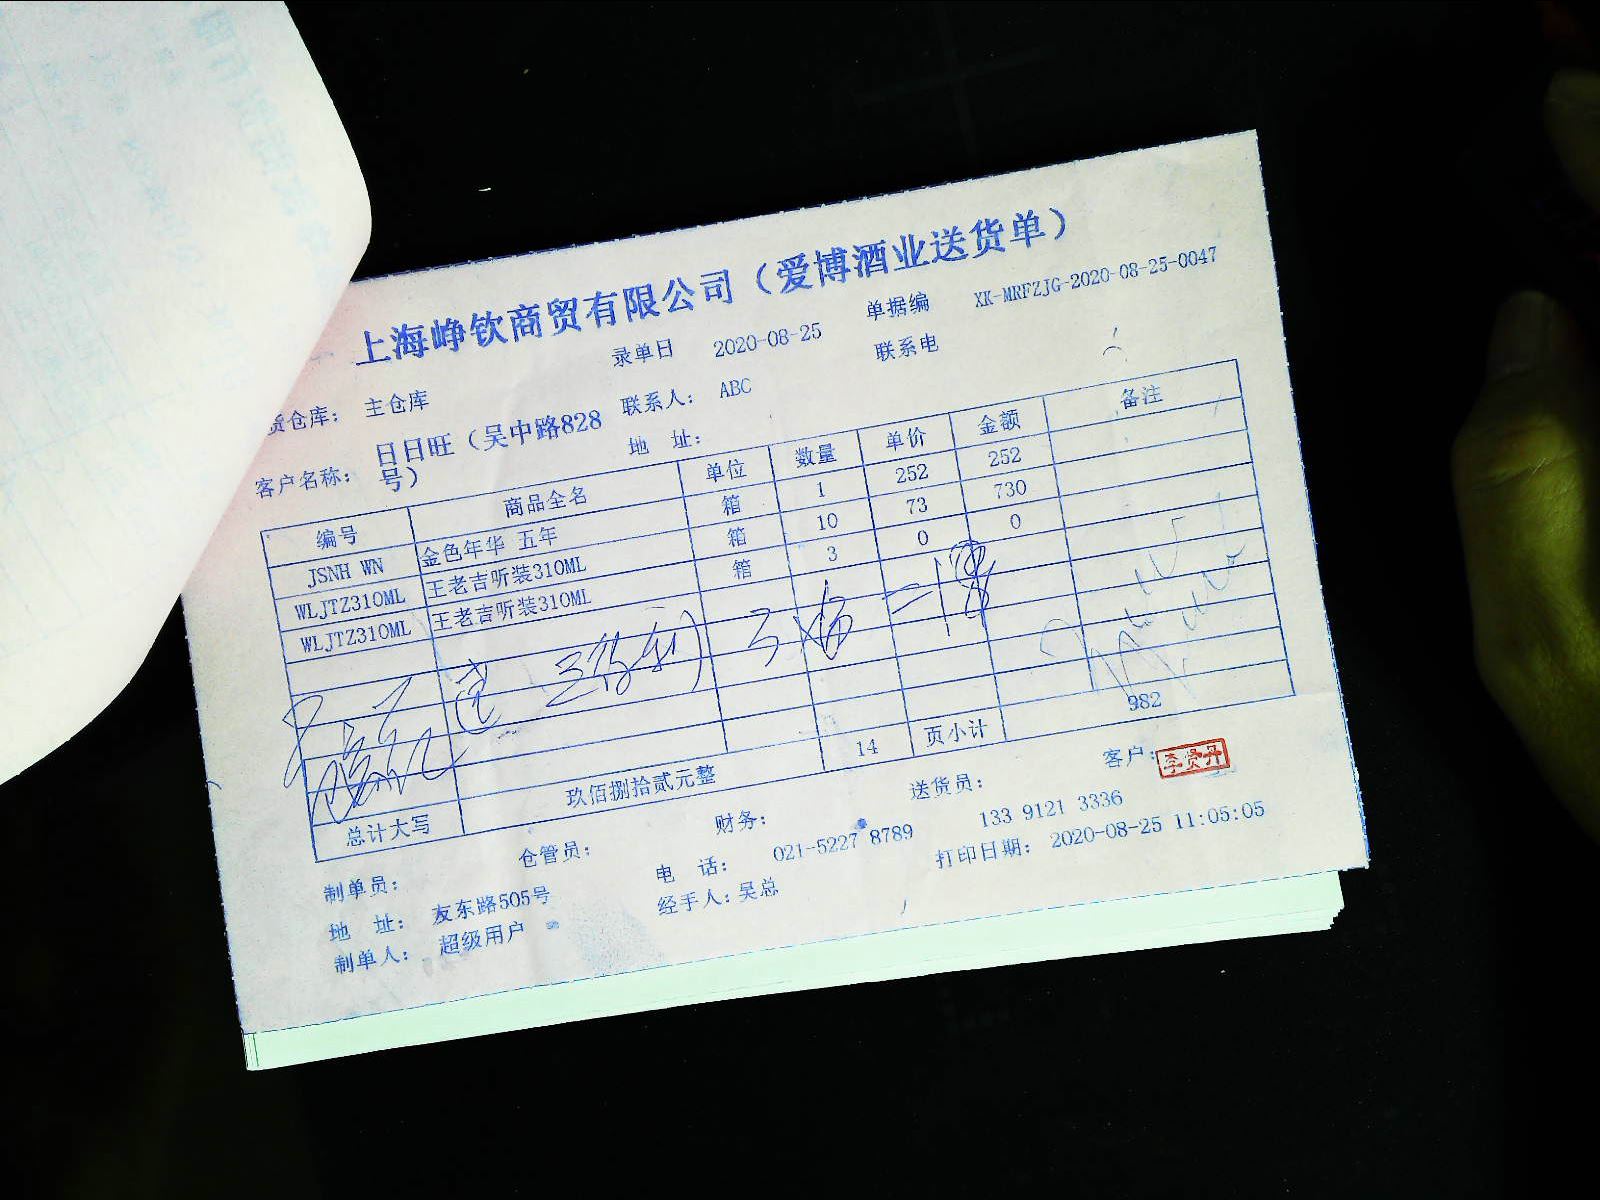 上海峥钦商贸有限公司（爱博酒业送货单）
录单日 2020-08-25 单据编 XK-MRFZJG-2020-08-25-0047
货仓库： 主仓库 联系人： ABC 联系电
客户名称： 日日旺（吴中路828号） 地 址：
编号 商品全名 单位 数量 单价 金额 备注
JSNH WN 金色年华 五年 箱 1 252 252
WLJTZ310ML 王老吉听装310ML 箱 10 73 730
WLJTZ310ML 王老吉听装310ML 箱 3 0 0
14 页小计 982
总计大写 玖佰捌拾贰元整
制单员： 仓管员： 财务： 送货员： 客户： 李贤丹
地 址： 友东路505号 电 话： 021-5227 8789 133 9121 3336
制单人： 超级用户 经手人：吴总 打印日期： 2020-08-25 11:05:05